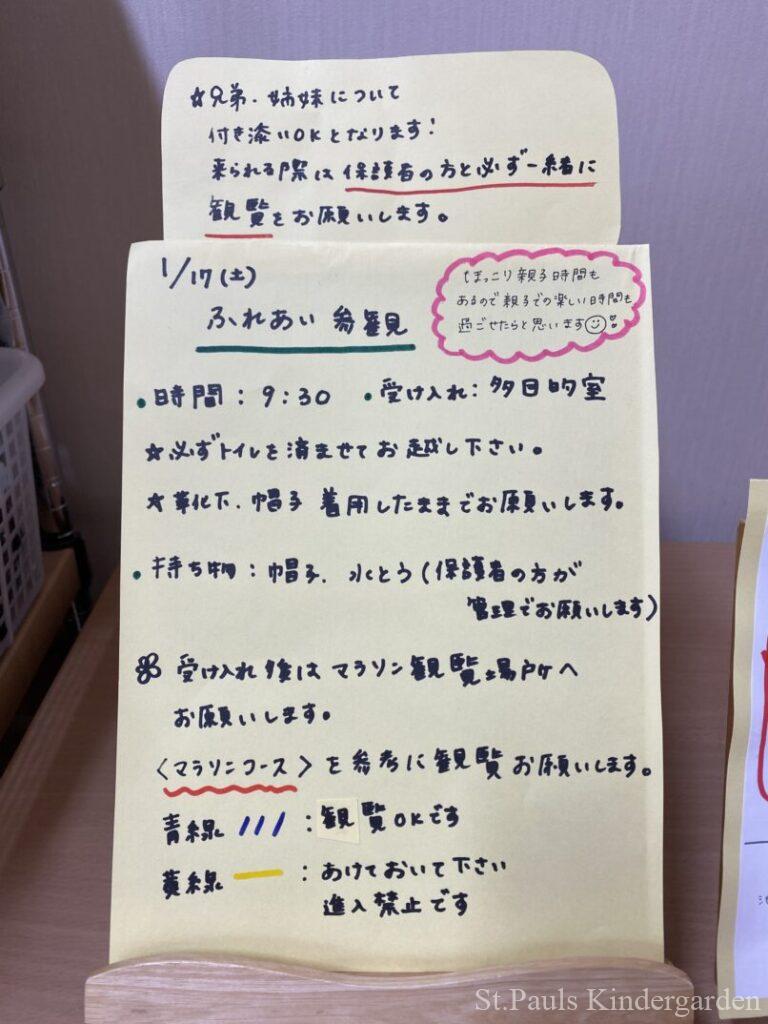 ☆兄弟、姉妹について
付き添いOKとなります!
来られる際は保護者の方と必ず一緒に
観覧をお願いします。
1/17(土)
ふれあい参観
ほっこり親子時間も
あるので親子での楽しい時間も
過ごせたらと思います
・時間:9:30 ・受け入れ:多目的室
☆必ずトイレを済ませてお越し下さい。
☆靴下、帽子 着用したままでお願いします。
・持ち物:帽子、水とう(保護者の方が
管理でお願いします)
受け入れ後はマラソン観覧場所へ
お願いします。
〈マラソンコース〉を参考に観覧お願いします。
青線 ///:観覧OKです
黄線 ー:あけておいて下さい
進入禁止です
St.Pauls Kindergarden